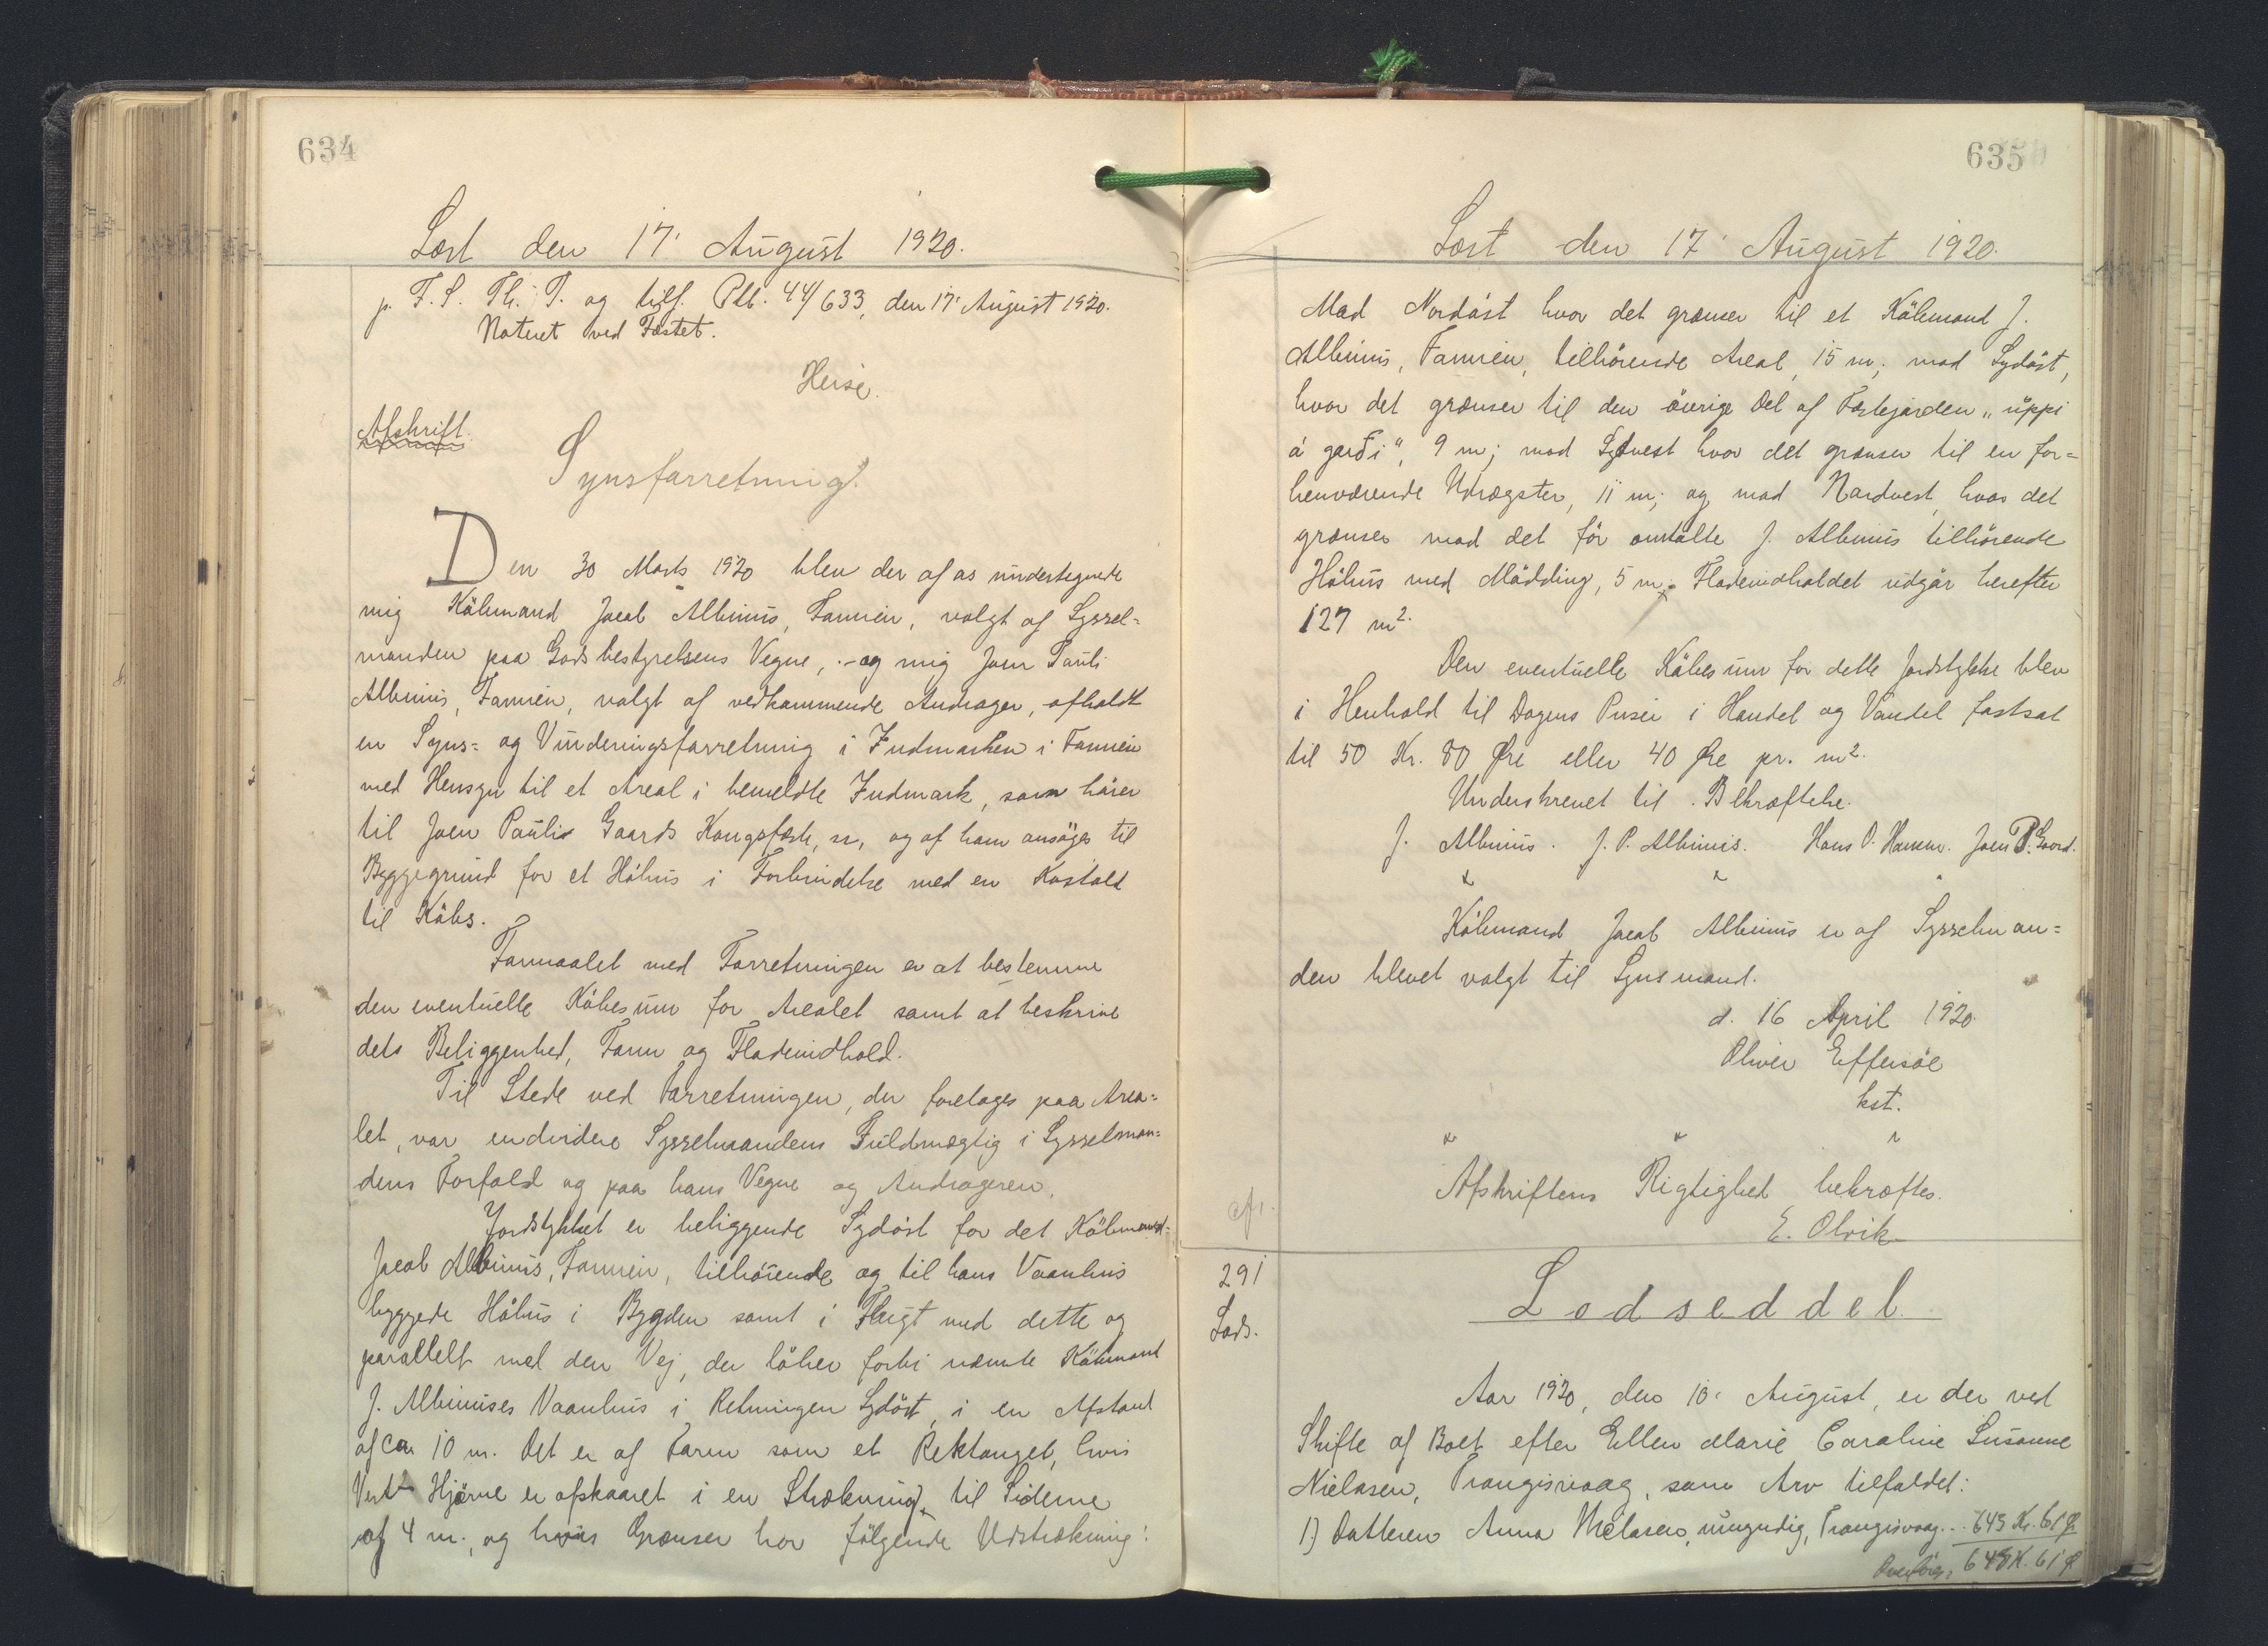 634
Læst den 17' August 1920.
p. F.S. Th. P. og tilf. Ptb. 44/633, den 17' August 1920.
Noteret ved Fæstet.
Heise.
Afskrift.
Synsforretning.
Den 30 Marts 1920 blev der af os undertegnede
mig Köbmand Jacob Albinus, Famien, valgt af Syssel=
manden paa Godsbestyrelsens Vegne, - og mig Joen Pauli
Albinus, Famien, valgt af vedkommende Andrager, afholdt
en Syns= og Vurderingsforretning i Indmarken i Famien
med Hensyn til et Areal i bemeldte Indmark, som hörer
til Joen Paulis Gaards Kongsfæste, sr, og af ham ansöges til
Byggegrund for et Höhus i Forbindelse med en Kostald
til Köbs.
Formaalet med Forretningen er at bestemme
den eventuelle Köbesum for Arealet samt at beskrive
dets Beliggenhed, Form og Fladeindhold.
Til Stede ved Forretningen, der foretages paa Area=
let, var endvidere Sysselmandens Fuldmægtig i Sysselman=
dens Forfald og paa hans Vegne og Andrageren.
Jordstykket er beliggende Sydöst for det Köbmand=
Jacob Albinus, Famien, tilhörende og til hans Vaanhus
byggede Höhus i Bygden samt i Flugt med dette og
parallelt med den Vej, der löber forbi nævnte Köbmand
J. Albinuses Vaanhus i Retningen Sydöst, i en Afstand
af ca. 10 m. Det er af Form som et Rektangel, hvis
Vest Hjörne er afskaaret i en Strækning til Siderne
af 4 m., og hvis Grænser har fölgende Udstrækning:
635
Læst den 17' August 1920.
Mod Nordöst hvor det grænser til et Köbmand J.
Albinus, Famien, tilhörende Areal, 15 m; mod Sydöst,
hvor det grænser til den övrige Del af Fæstejorden "uppi
á garði", 9 m; mod Sydvest hvor det grænser til en for=
henværende Udrögster, 11 m; og mod Nordvest, hvor det
grænser mod det för omtalte J. Albinus tilhörende
Höhus med Mödding, 5 m. Fladeindholdet udgör herefter
127 m².
Den eventuelle Köbesum for dette Jordstykke blev
i Henhold til Dagens Priser i Handel og Vandel fastsat
til 50 Kr. 80 Øre eller 40 Øre pr. m².
Underskrevet til Bekræftelse.
J. Albinus. J. P. Albinus. Hans P. Hansen. Joen P. Gaard.
" " "
Köbmand Jacob Albinus er af Sysselman=
den blevet valgt til Synsmand.
d. 16 April 1920.
Oliver Effersöe
kst.
" " "
Afskriftens Rigtighed bekræftes.
cf.
E. Olrik
291
Lods.
Lodseddel.
Aar 1920, den 10' August, er der ved
Skifte af Boet efter Ellen Marie Caroline Susanne
Nielasen, Trangisvaag, som Arv tilfaldet:
1) Datteren Anna Nielasen, umyndig, Trangisvaag... 643 Kr. 61 Ø
Overföres 643 K. 61 Ø